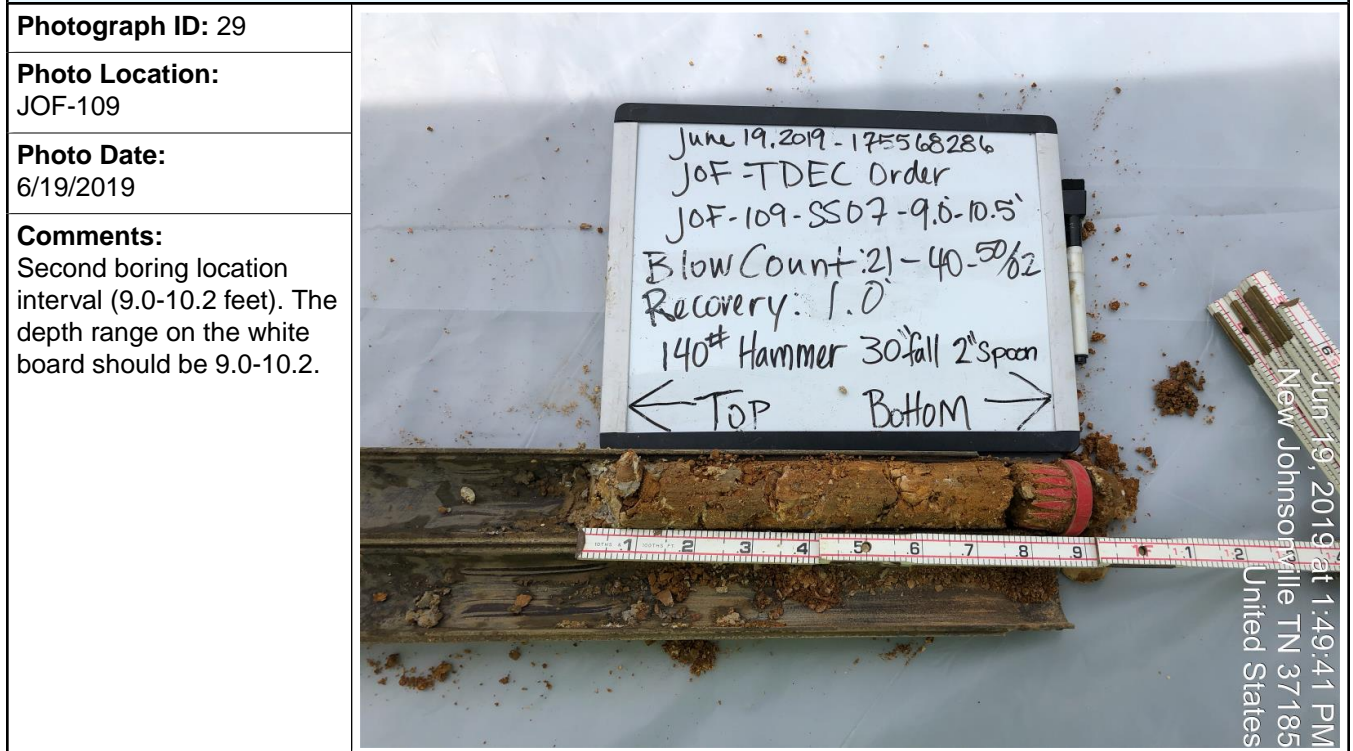 Photograph ID: 29
Photo Location:
JOF-109
Photo Date:
6/19/2019
Comments:
Second boring location
interval (9.0-10.2 feet). The
depth range on the white
board should be 9.0-10.2.
June 19, 2019 - 175568286
JOF - TDEC Order
JOF-109-SS07-9.0-10.5'
Blow Count: 21-40-50/0.2
Recovery: 1.0'
140# Hammer 30" fall 2" Spoon
← TOP BOTTOM →
.1 .2 .3 .4 .5 .6 .7 .8 .9 1F 1.1 1.2
6
Jun 19, 2019 at 1:49:41 PM
New Johnsonville TN 37185
United States